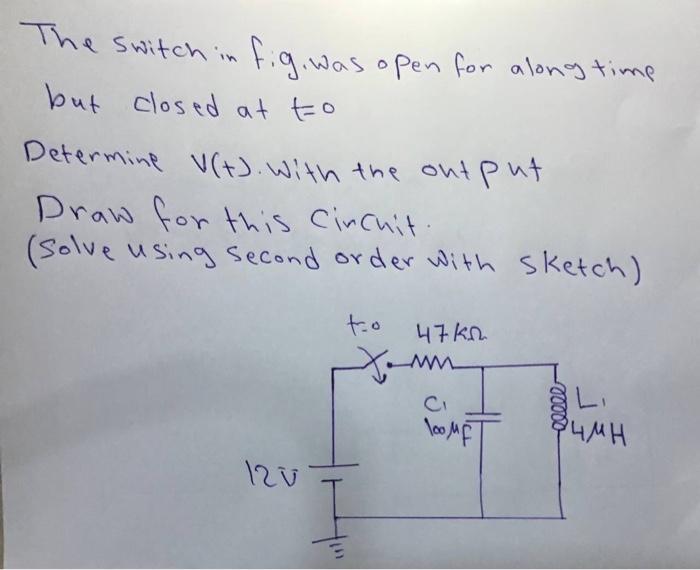 The switch in fig. was open for along time
but closed at t=0
Determine V(t). with the output
Draw for this Circuit.
(Solve using second order with sketch)
t=0 47kΩ
C1
100MF
L1
4MH
12V